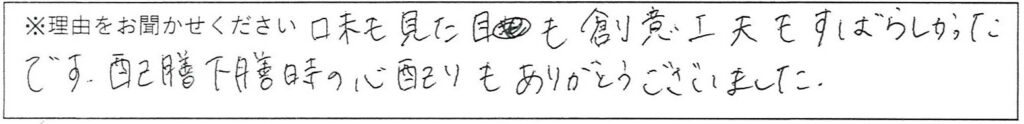 ※理由をお聞かせください 口味も見た目も創意工夫もすばらしかった
です.配膳下膳時の心配りもありがとうございました.